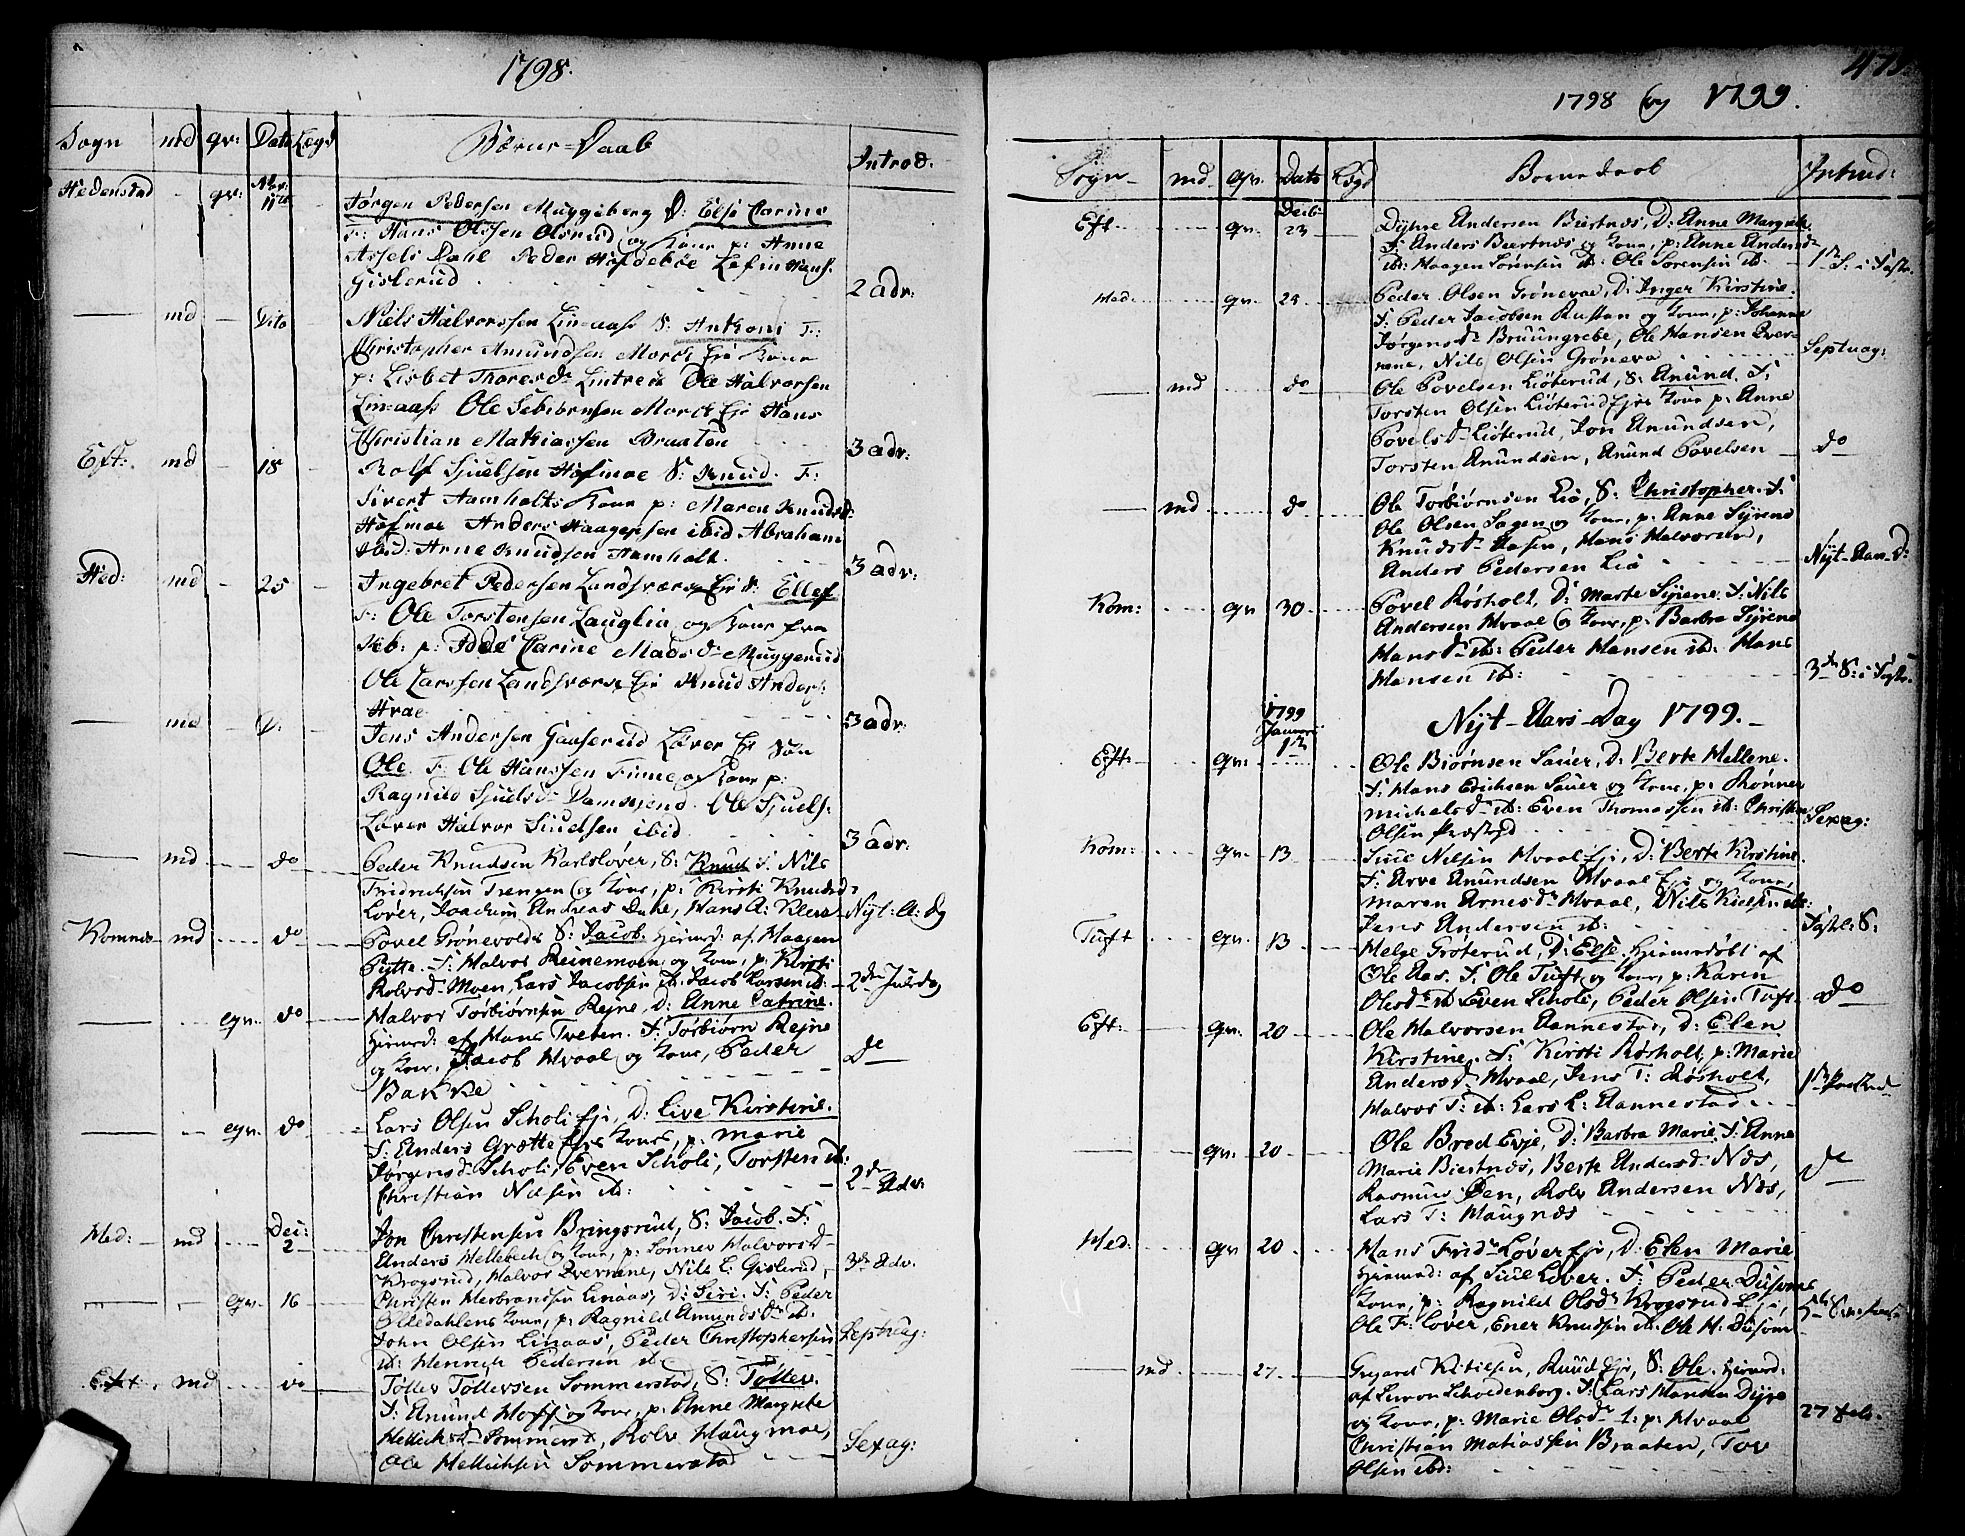 1798.
Sogn md qv: Dato Lægd Börne=Daab Introd.
Hedenstad - qv: Nbr: 11te - Jørgen Pedersen Muggeberg D: Else Carine
F: Hans Olssen Olsrud og Kone p: Anne
Assels Dahl Peder Hofdebøe Lefin Hans:
Gislerud 2 adv:
— md - Dito Niels Halvorssen Linaass S: Anthoni F:
Christopher Amundsen Morck Eje Kone
p: Lisbet Thoresdr Lintveit Ole Halvorsen
Linaass Ole Sebiörnsen Morck Eje Hans
Christian Mathiassen Braaten 3 adv:
Eft: md - 18 - Rolf Sjuelsen Hofmoe S: Knud. F:
Sivert Aamholts Kone p: Maren Knudsd:
Hofmoe Anders Haagenssen ibid Abraham
ibid: Arne Knudsen Aamholt. 3 adv:
Hed: md - 25 - Ingebret Pedersen Landsværk Eje S: Ellef
F: Ole Torstensen Lauglia og Kone fra
p: Carine Madsdr Muggerud
Ole Larssen Landsværk Eje Knud Anders:
Hvae 3 adv:
— md - D: Jens Andersen Gauserud Løver Eje Søn
Ole F: Ole Hanssen Finne og Kone p:
Ragnild Sjuelsdr Damsejend. Ole Sjuels:
Løver Halvor Siuelsen ibid 3 adv:
— md - do Peder Knudsen Karlsløver, S: Knud F: Nils
Fridrichsen Trengen og Kone, p: Kirsti Knudsd:
Løver, Joachim Andreas Duhe, Hans A: Klev Nyt: A: Dg
Komnes md - do Povel Grönevolds S: Jacob. Hjemed: af Haagen
Pytte. F: Halvor Reinemoen og Kone, p: Kirsti
Rolvsd. Moen, Lars Jacobsen ib: Jacob Larsen ib. 2den Juledag
— qv. do Halvor Torbiörnsen Rejne, D: Anne Catrine.
Hjemed: af Hans Tveten. F: Torbiörn Rejne
og Kone, Jacob Hvaal og Kone, Peder
Bakke do
— qv. do Lars Olsen Scholi Eje, D: Live Kirstine.
F: Anders Grætte Ejes Kone, p: Marie
Jørgensd. Scholi, Even Scholi, Torsten ib:
Christian Nilsen ib: 2den Adv:
Hed: - md - Dec: 2 Jon Christensen Bringsrud, S: Jacob. F:
Anders Hellebech og Kone, p: Sönnev Halvorsd.
Krogsrud, Halvor Qverne, Nils L: Gislerud, 3de Adv.
— qv. 16 - Christen Herbrandsen Linaas, D: Siri. F: Peder
Olledahlens Kone, p: Ragnild Amundsdr ib:
John Olsen Linaas, Peder Christophersen
ib: Henrich Pedersen ib: Septuag:
Eft. md do Töllev Töllersen Sommerstad, S: Töllev.
F: Anund Hoff og Kone, p: Anne Margrete
Hellechsd. Sommerst, Rolv Haugmoe,
Ole Hellechsen Sommerstad Sexag:
1798 og 1799.
Sogn md. qv. Dato Lægd Börnedaab Introd:
Eft. qv. Decbr 23 Dyhre Andersen Biertnæs, D: Anne Margrete.
F: Anders Biertnæs og Kone, p: Anne Andersdr
ib: Haagen Sörensen ib: Ole Sörensen ib. 1ste S: i Faste.
Hed: qv. 23 Peder Olsen Grönevae, D: Inger Kirstine.
F: Peder Jacobsen Rustan og Kone, p: Johanne
Jörgensdr Bruungrebe, Ole Hansen Qver-
ne, Nils Olsen Gröneva Septuag:
— md do Ole Povelsen Liöterud, S: Anund. F:
Torsten Olsen Liöterud Ejes Kone p: Anne
Povelsdr Liöterud, Jon Anundsen,
Torsten Anundsen, Anund Povelsen do
— md do Ole Torbiörnsen Liö, S: Christopher. F:
Ole Olsen Sagen og Kone, p: Anne Syrene
Knudsdr Aasen, Hans Halvorsen,
Anders Pedersen Liö Nyt-Aars-D:
Kom: qv 30 Povel Rösholt, D: Marte Syrene. F: Nils
Andersen Hvaal og Kone, p: Barbra Syrene
Hansdr ib: Peder Hansen ib: Hans
Hansen ib: 3de S: i Faste.
1799 Januari 1te Nyt-Aars-Dag 1799.
Eft: qv: Ole Biörnsen Sauer, D: Berte Hellene.
F: Hans Erichsen Sauer og Kone, p: Rönnev
Michelsdr ib: Even Thomassen ib: Christen
Olsen Præstegd Sexag:
Kom: qv. 13 Siuel Nilsen Hvaal Eje, D: Berte Kirstine.
F: Arve Anundsen Hvaal Eje og Kone,
Maren Arnesdr Hvaal, Nils Nielsen ib:
Jens Andersen ib: Fastel: S:
Tuft qv. 13 Helge Gröterud, D: Else. Hjemmedöbt af
Ole Aas. F: Ole Tuft og Kone, p: Karen
Olesdr ib Even Scholi, Peder Olsen Tuft. do
Eft: qv. 20 Ole Halvorsen Aannestad, D: Elen
Kirstine. F: Kirsti Rösholt, p: Marie
Andersdr Hvaal, Jens T: Rösholt,
Halvor T: ib: Lars L: Aannestad 1ste
— qv. 20 Ole Bred Evje, D: Barbra Marie. F: Anne
Marie Biertnæs, Berte Andersd: Næs,
Rasmus Öen, Rolv Andersen Næs,
Lars T: Haugnæs do
Hed: qv 20 Hans Fridr. Löver Eje, D: Elen Marie
Hjemed: af Siuel Löver. F: Peder Dusons
Kone, p: Ragnild Olsdr Krogsrud Eje,
Ole F: Löver, Ener Knudsen ib. Ole H: Duson
— md 27 Gregard Kitilsen, Ruud Eje, S: Ole. Hjemed:
af Simon Schoedenborg. F: Lars Hansen Dyre
og Kone, p: Marie Olsdr Hvaal
Christian Matiassen Braaten, Tov
Olsen ibd: 27 Feb.